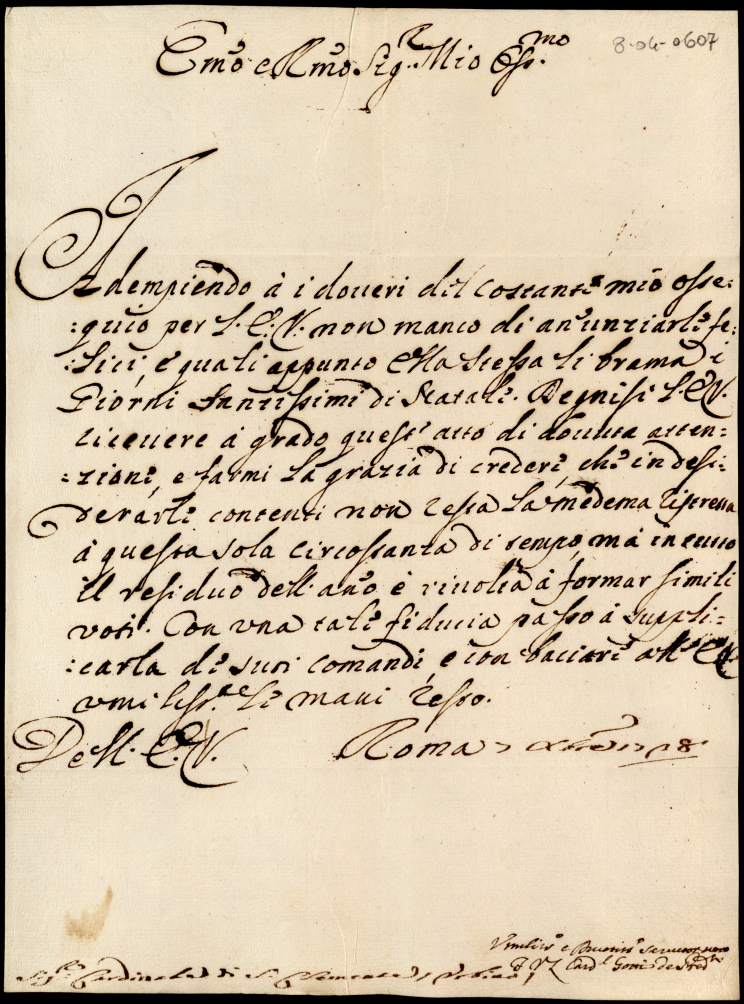 8-04-0607
Em̃o e Rm̃o Sig.r Mio Oss.mo
Adempiendo à i doveri del costante mio osse:
:quio per l'. E. V. non manco di an̄unziarle fe:
:lici, e quali appunto Ella stessa li brama i
Giorni Santissimi di Natale. Degnisi l'. E. V.
ricevere à grado quest'atto di dovuta atten:
:zione, e farmi la grazia di credere, che in desi:
derarle contenti non cessa la medema ristretta
à questa sola circostanza di tempo, mà in tutto
il residuo dell'. an̄o è rivolta à formar simili
voti. Con una tale fiducia passo à suppli:
:carla de suoi comandi, e con baciare all'. E. V.
umiliss.te le mani resto.
Dell'. E. V. Roma 18
Sig.r Cardinale di
Umiliss.o e Devotiss.o Servitor vero
Card.l Gotti